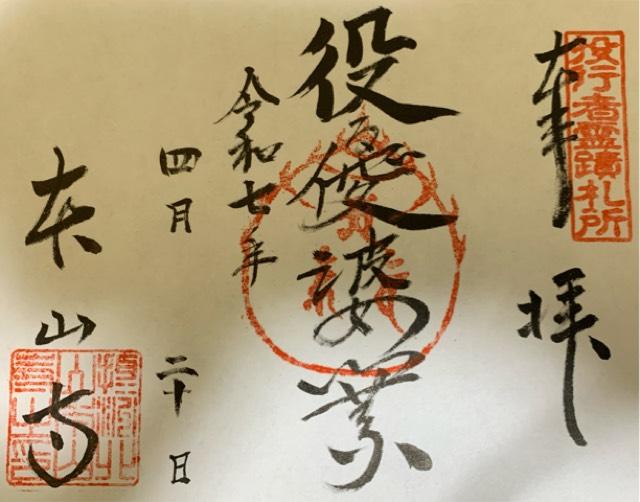 役行者霊蹟札所
奉拝
役優婆塞
令和七年
四月二十日
本山寺